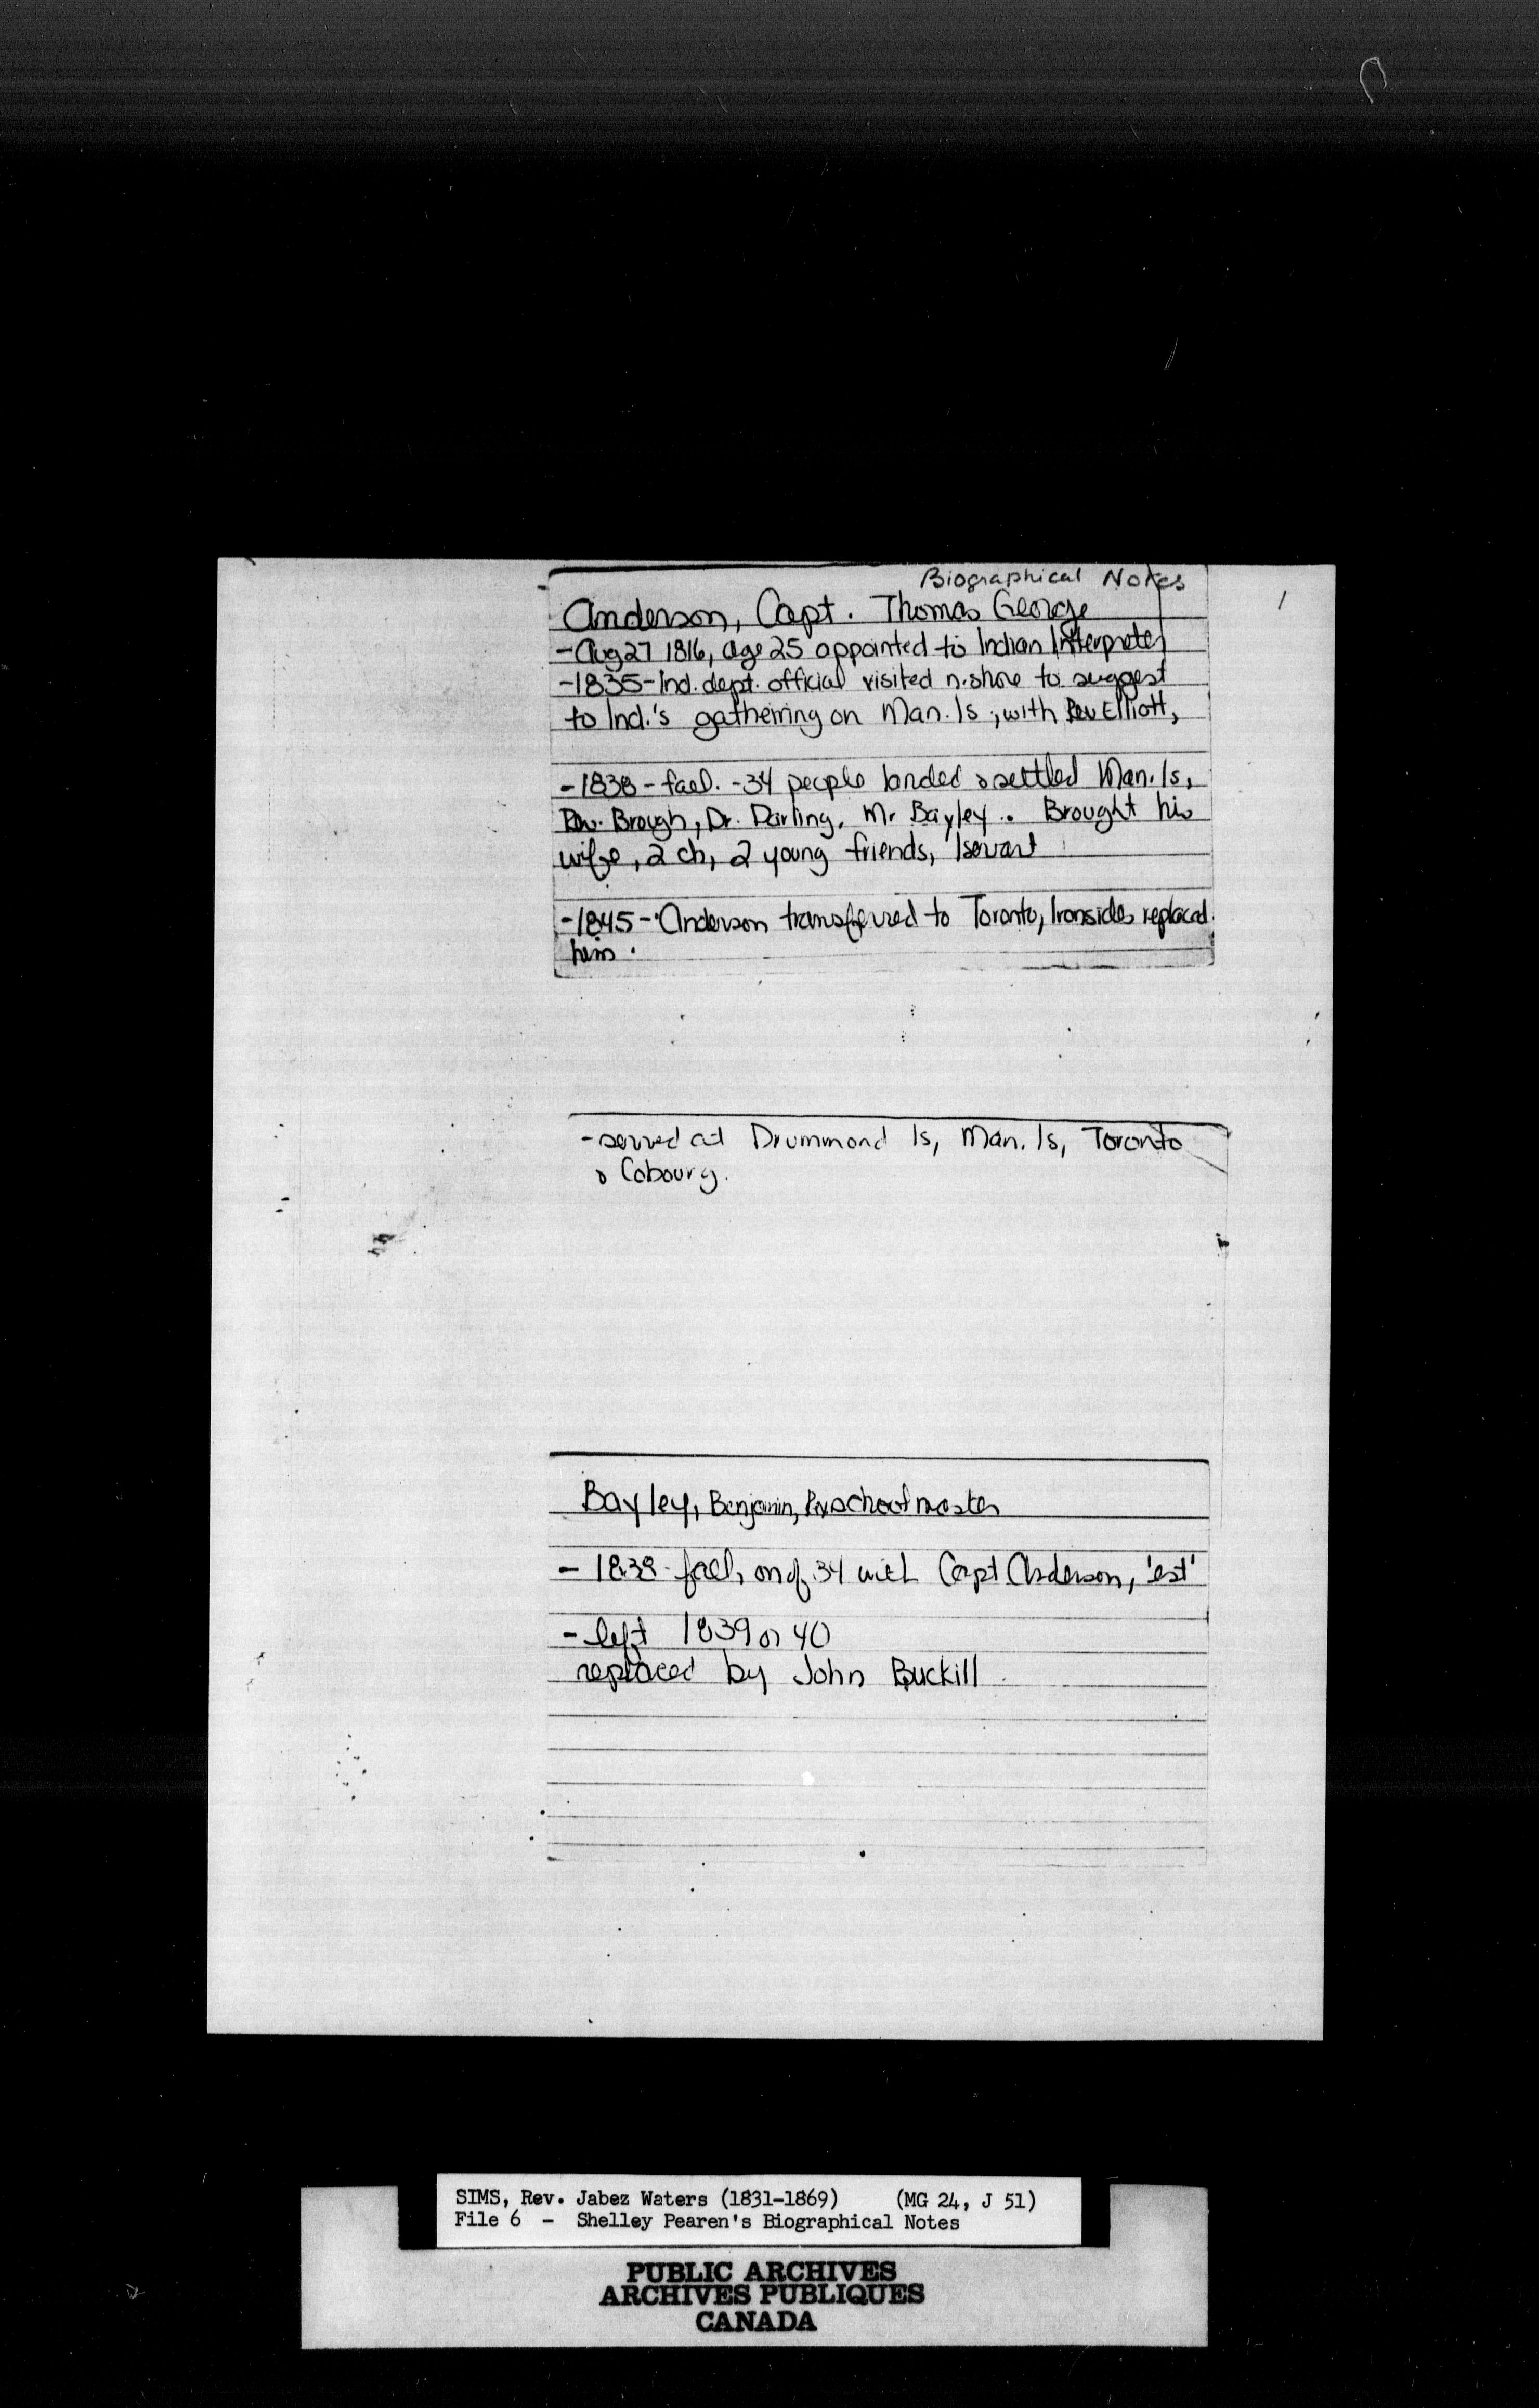 Biographical Notes
1
Anderson, Capt. Thomas George
- Aug 27 1816, age 25 appointed to Indian Interpreter
- 1835 - Ind. dept. official visited n. shore to suggest
to Ind.'s gatheiring on Man. Is ; with Rev Elliott,
- 1838 - fall. - 34 people landed & settled Man. Is,
Rev. Brough, Dr. Darling, Mr Bayley. Brought his
wife, 2 ch, 2 young friends, 1 servant
- 1845 - Anderson transferred to Toronto, Ironsides replaced
him.
- served at Drummond Is, Man. Is, Toronto
& Cobourg.
Bayley, Benjamin, schoolmaster
- 1838 - fall, on of 34 with Capt Anderson, 'est'
- left 1839 or 40
replaced by John Buckill
SIMS, Rev. Jabez Waters (1831-1869) (MG 24, J 51)
File 6 - Shelley Pearen's Biographical Notes
PUBLIC ARCHIVES
ARCHIVES PUBLIQUES
CANADA